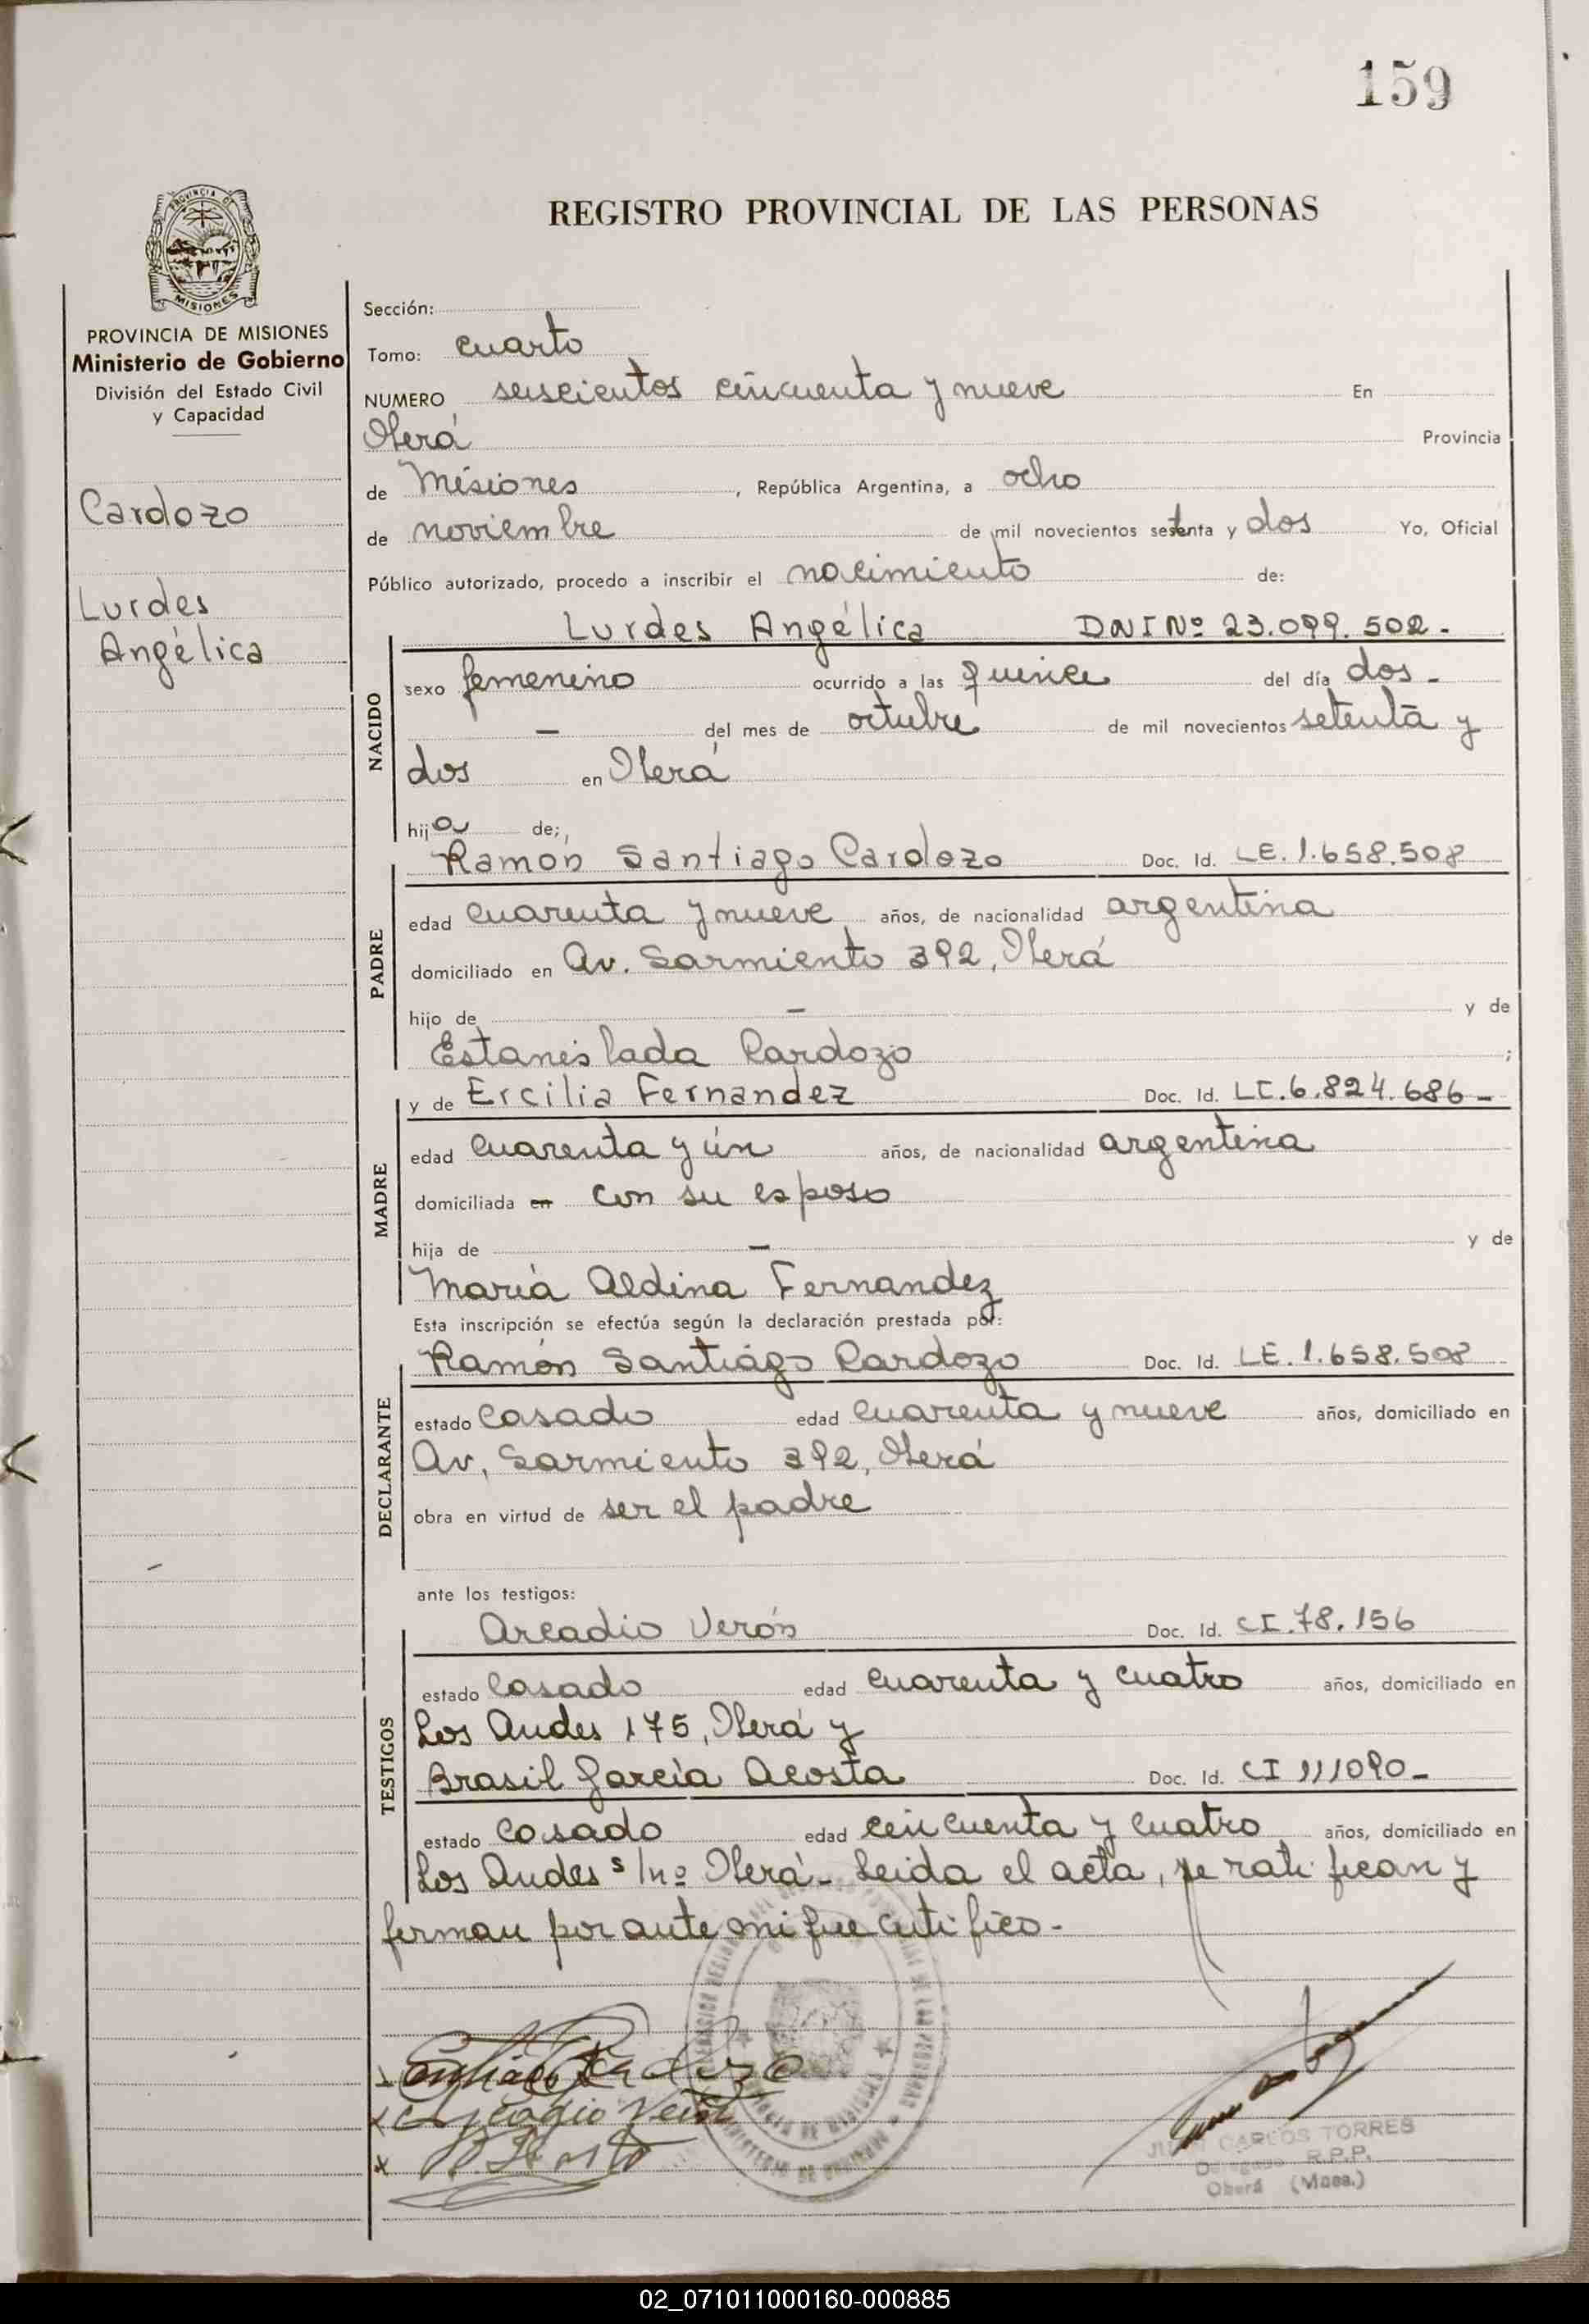 159
PROVINCIA DE
MISIONES
REGISTRO PROVINCIAL DE LAS PERSONAS
PROVINCIA DE MISIONES
Ministerio de Gobierno
División del Estado Civil
y Capacidad
Cardozo
Lurdes
Angélica
Sección:
Tomo: cuarto
NUMERO seiscientos cincuenta y nueve En
Oberá Provincia
de Misiones, República Argentina, a ocho
de noviembre de mil novecientos setenta y dos Yo, Oficial
Público autorizado, procedo a inscribir el nacimiento de:
Lurdes Angélica DNI Nº 23.099.502.-
NACIDO
sexo femenino ocurrido a las quince del día dos -
- del mes de octubre de mil novecientos setenta y
dos en Oberá
hija de;
Ramón Santiago Cardozo Doc. Id. LE. 1.658.508
PADRE
edad cuarenta y nueve años, de nacionalidad argentina
domiciliado en Av. Sarmiento 392, Oberá
hijo de - y de
Estanislada Cardozo ;
y de Ercilia Fernandez Doc. Id. LC. 6.824.686 -
MADRE
edad cuarenta y un años, de nacionalidad argentina
domiciliada en con su esposo
hija de - y de
María Aldina Fernandez
Esta inscripción se efectúa según la declaración prestada por:
Ramón Santiago Cardozo Doc. Id. LE. 1.658.508
DECLARANTE
estado casado edad cuarenta y nueve años, domiciliado en
Av. Sarmiento 392, Oberá
obra en virtud de ser el padre
ante los testigos:
Arcadio Verón Doc. Id. CI. 78.156
TESTIGOS
estado casado edad cuarenta y cuatro años, domiciliado en
Los Andes 175, Oberá y
Brasil García Acosta Doc. Id. CI 111090 -
estado casado edad cincuenta y cuatro años, domiciliado en
Los Andes s/nº Oberá - Leida el acta, se ratifican y
firman por ante mi que certifico -
JUAN CARLOS TORRES
Delegado R.P.P.
Oberá (Mnes.)
02_071011000160-000885